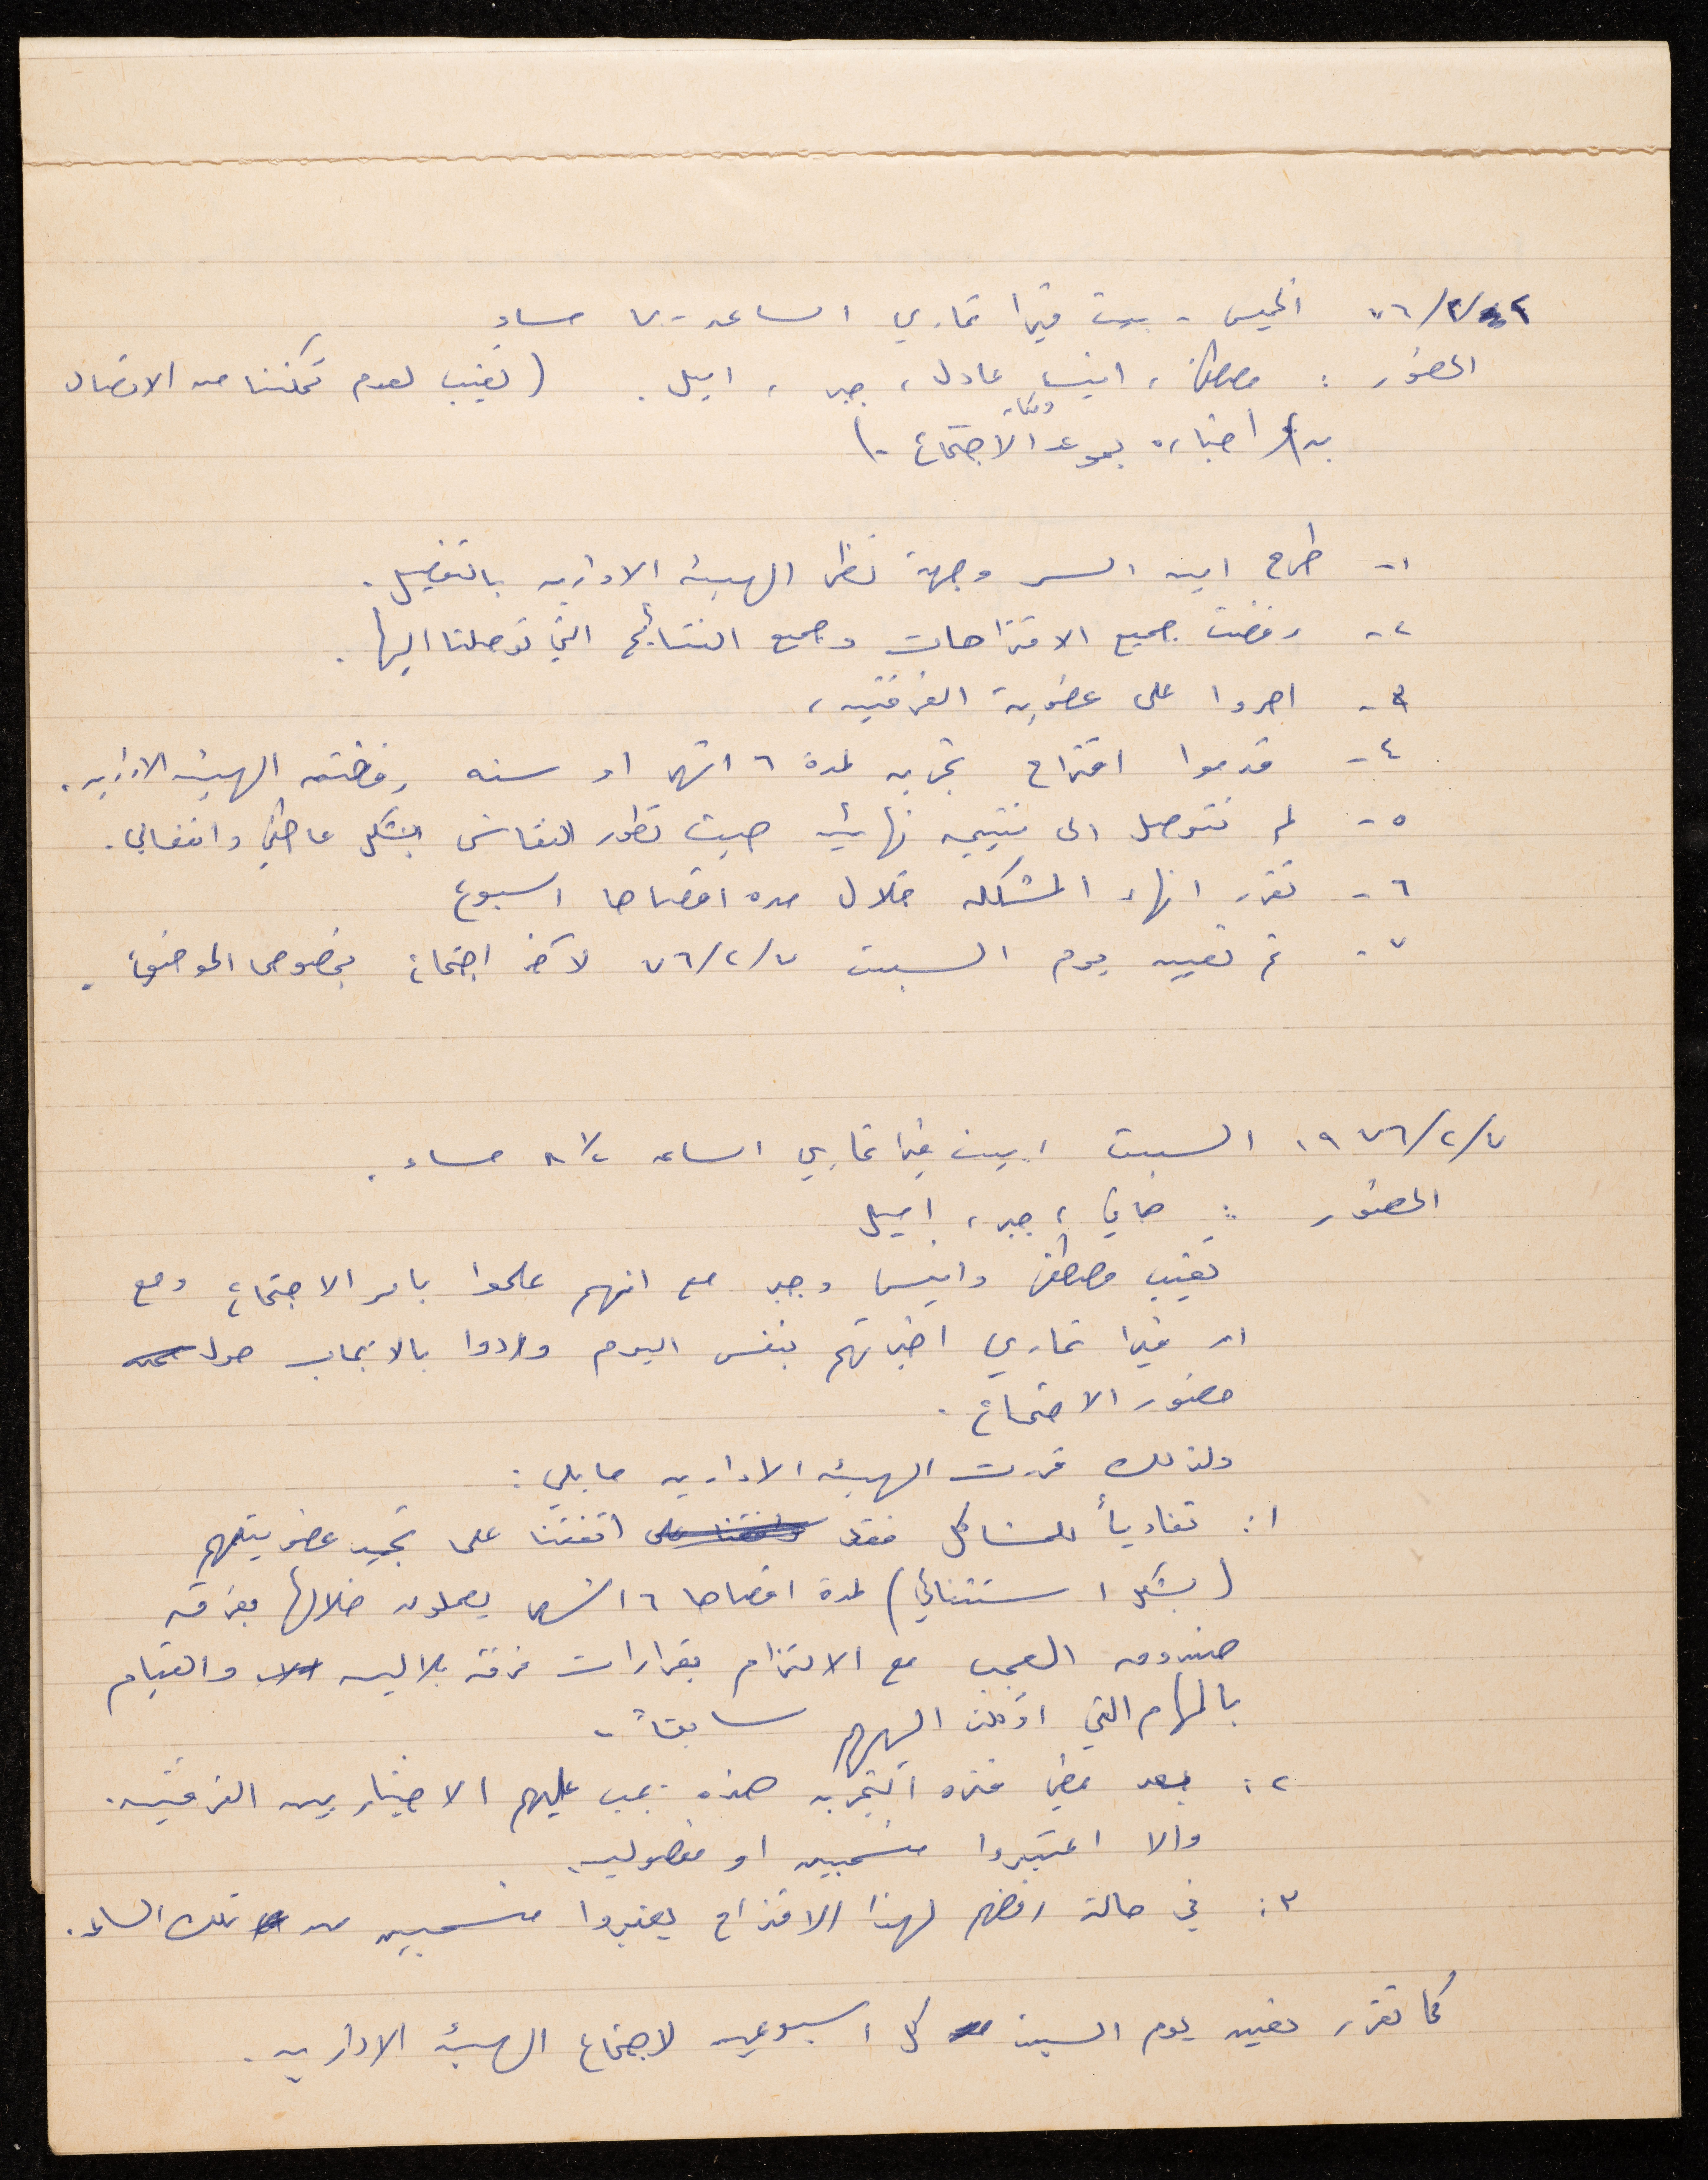 ٧٦/٢/ الخميس - بيت فيرا تماري الساعه ٧ مساءً
الحضور : مصطفى ، انيس عادل ، جبر ، اميل . ( تغيب لعدم تمكننا من الاتصال
به اخباره بموعد ومكان الاجتماع . )
١- طرح امين السر وجهة نظر الهيئه الاداريه بالتفصيل .
٢- رفضت جميع الاقتراحات وجميع النتائج التي توصلنا اليها .
٣- اصروا على عضوية الفرقتين ،
٤- قدموا اقتراح تجربه لمدة ٦ اشهر او سنه رفضته الهيئه الاداريه .
٥- لم نتوصل الى نتيجه نهائيه حيث تطور النقاش بشكل عاطفي وانفعالي .
٦- تقرر انهاء المشكله خلال مده اقصاها اسبوع
٧- تم تعيين يوم السبت ٧٦/٢/٧ لآخر اجتماع بخصوص الموضوع .
١٩٧٦/٢/٧ السبت ، بيت فيرا تماري الساعه ٨ ١/٢ مساء .
الحضور : هاني ، جبر ، اميل
تغيب مصطفى وانيس وجبر مع انهم علموا بامر الاجتماع ومع
ان فيرا تماري اخبرتهم بنفس اليوم وردوا بالايجاب حول
حضور الاجتماع .
ولذلك قررت الهيئه الاداريه ما يلي :
١ : تفادياً للمشاكل فقد اتفقنا على تجميد عضويتهم
( بشكل استثنائي ) لمدة اقصاها ٦ اشهر يعملون خلالها بفرقة
صندوق العجب مع الالتزام بقرارات فرقة بلالين والقيام
بالمهام التي اوكلت اليهم سابقاً .
٢ : بعد مضي فتره التجربه هذه يجب عليهم الاختيار بين الفرقتين .
والا اعتبروا منسحبين او مفصولين
٣ : في حالة رفضهم لهذا الاقتراح يعتبروا منسحبين من تلك الساعه .
كما تقرر تعيين يوم السبت كل اسبوعين لاجتماع الهيئه الاداريه .